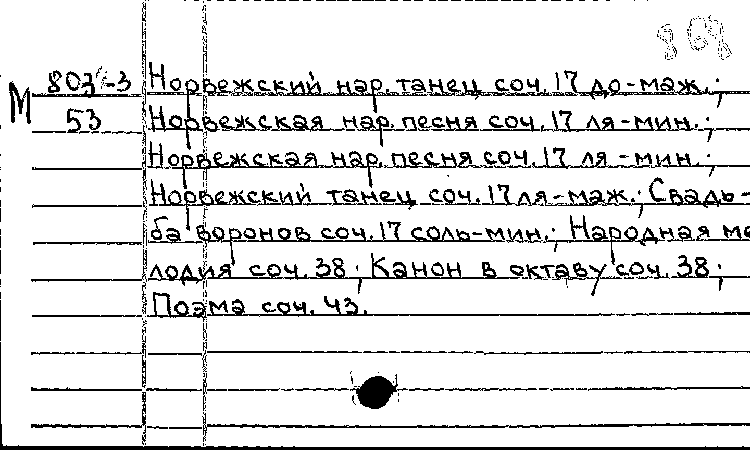 М 803-3 Норвежский нар. танец соч. 17 до-маж.;
53 Норвежская нар. песня соч. 17 ля-мин.;
Норвежская нар. песня соч. 17 ля-мин.;
Норвежский танец соч. 17 ля-маж.; Свадь-
ба воронов соч. 17 соль-мин.; Народная ме
лодия соч. 38; Канон в октаву соч. 38;
Поэма соч. 43.